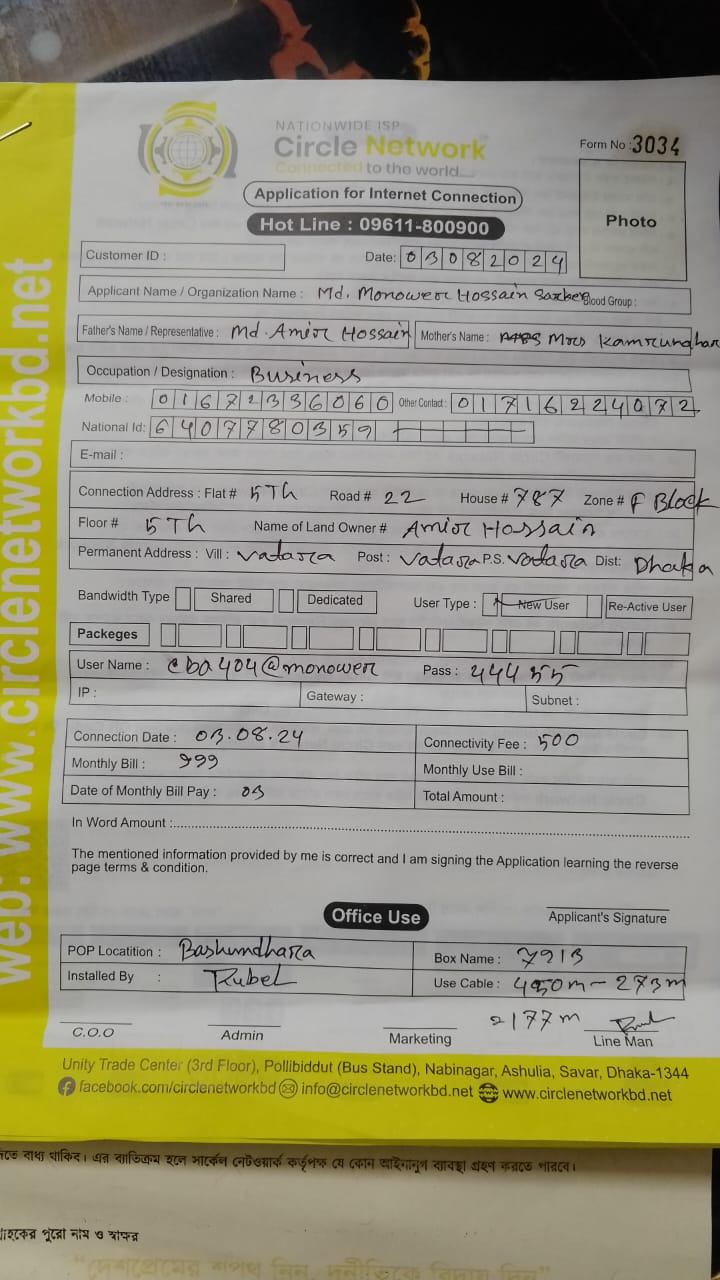 NATIONWIDE ISP
Circle Network
Connected to the world....
Form No : 3034
Application for Internet Connection
Photo
Hot Line : 09611-800900
Customer ID :
Date: 03082024
Applicant Name / Organization Name : Md. Monower Hossain Sarker Blood Group :
Father's Name / Representative : Md. Amir Hossain Mother's Name : Mrs Kamrunnahar
Occupation / Designation : Business
Mobile : 01672336060 Other Contact : 01716224072
National Id: 6407780359
E-mail :
Connection Address : Flat # 5Th Road # 22 House # 787 Zone # F Block
Floor # 5Th Name of Land Owner # Amir Hossain
Permanent Address : Vill : Vatara Post : Vatara P.S. Vatara Dist: Dhaka
Bandwidth Type Shared Dedicated User Type : New User Re-Active User
Packeges
User Name : cba404@monower Pass : 44455
IP : Gateway : Subnet :
Connection Date : 03.08.24 Connectivity Fee : 500
Monthly Bill : 999 Monthly Use Bill :
Date of Monthly Bill Pay : 03 Total Amount :
In Word Amount :
The mentioned information provided by me is correct and I am signing the Application learning the reverse
page terms & condition.
Office Use
Applicant's Signature
POP Locatition : Bashundhara Box Name : 7913
Installed By : Rubel Use Cable : 450m - 273m
2177m
C.O.O Admin Marketing Line Man
Unity Trade Center (3rd Floor), Pollibiddut (Bus Stand), Nabinagar, Ashulia, Savar, Dhaka-1344
facebook.com/circlenetworkbd info@circlenetworkbd.net www.circlenetworkbd.net
web: www.circlenetworkbd.net
বাধ্য থাকিব। এর ব্যতিক্রম হলে সার্কেল নেটওয়ার্ক কর্তৃপক্ষ যে কোন আইনানুগ ব্যবস্থা গ্রহণ করতে পারবে।
গ্রাহকের পুরো নাম ও স্বাক্ষর
"দেশপ্রেমের শপথ নিন, দুর্নীতিকে বিদায় দিন"